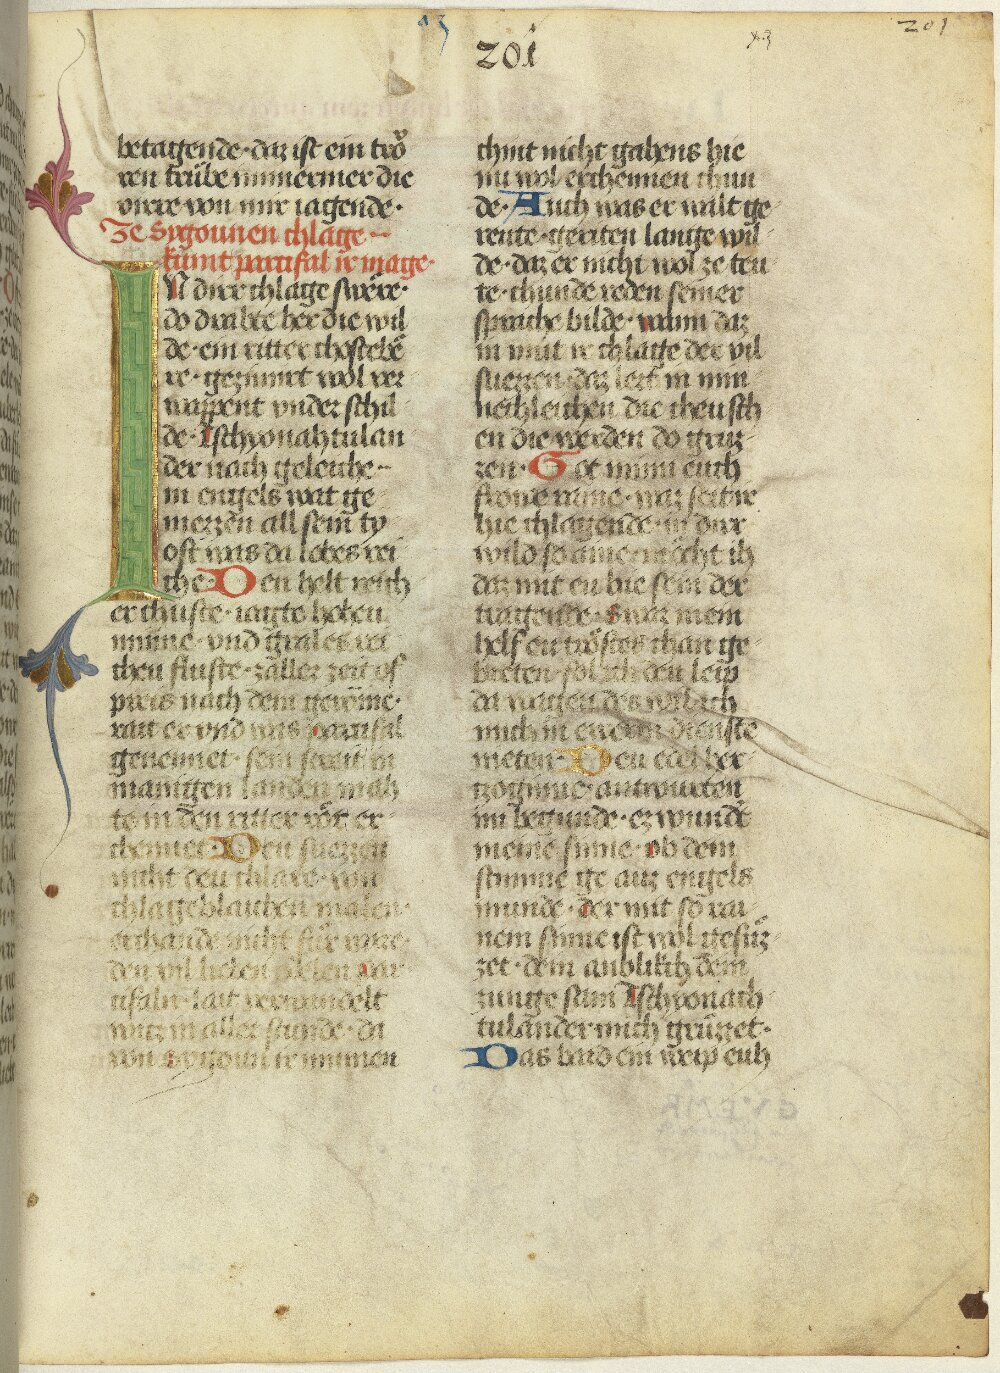 201
201
betagende · daz ist ein trǒ
ren trůbe nimmermer die
virre von mir iagende ·
Ze Sygounen chlage
kumt partifal ir mage ·
IN dirr chlage swere ·
do drabte her die wil
de · ein ritter chostebē
re · gezimirt wol ver
wappent vnder schil
de · Tschyonahtulan
der nach geleiche
in engels wat ge
mezzen all sein ty
ost was da lobes rei
che · Den helt reich
er chuste · iagte hohen
minne · vnd grales rei
chen fluste · zaller zeit of
preis nach dem gewinne ·
rait er vnd was partifal
genennet · sein
manigen landen mah
te in den ritter rot er
chennet · Den suezzen
niht den chlare · von
erchande niht für ware ·
den vil lieben
tifaln · lait verwandelt
in aller stunde · da
von Sygoun ir minnen
chint nicht gahens hie
nu wol erchennen chun
de · Auch was er wilt ge
rente · geriten lange wil
de · daz er nicht wol ze teu
te · chunde reden seiner
sprache bilde · wann daz
in mut ir chlage der vil
suezzen · daz lert in min
nechleichen die cheusch
en die werden do gruz
zen · Got minn euch
frowe raine · waz seit ir
hie chlagende · in dirr
wild so aine · mocht ih
daz mit eu hie sein der
tragende · Swaz mein
helf eu trostes chan ge
bieten · sol ich den leip
da wagen des wil ich
mich in ewern dienste
nieten · Den edel her
zoginne · antwurten
im begunde · ez wundt
meine sinne · ob dem
stimme ge auz engels
munde · der mit so rai
nem stime ist wol gesuz
zet · dem anblikch dem
zunge sam Tschyonach
tulander mich gruzzet ·
Das baid ein weip euh